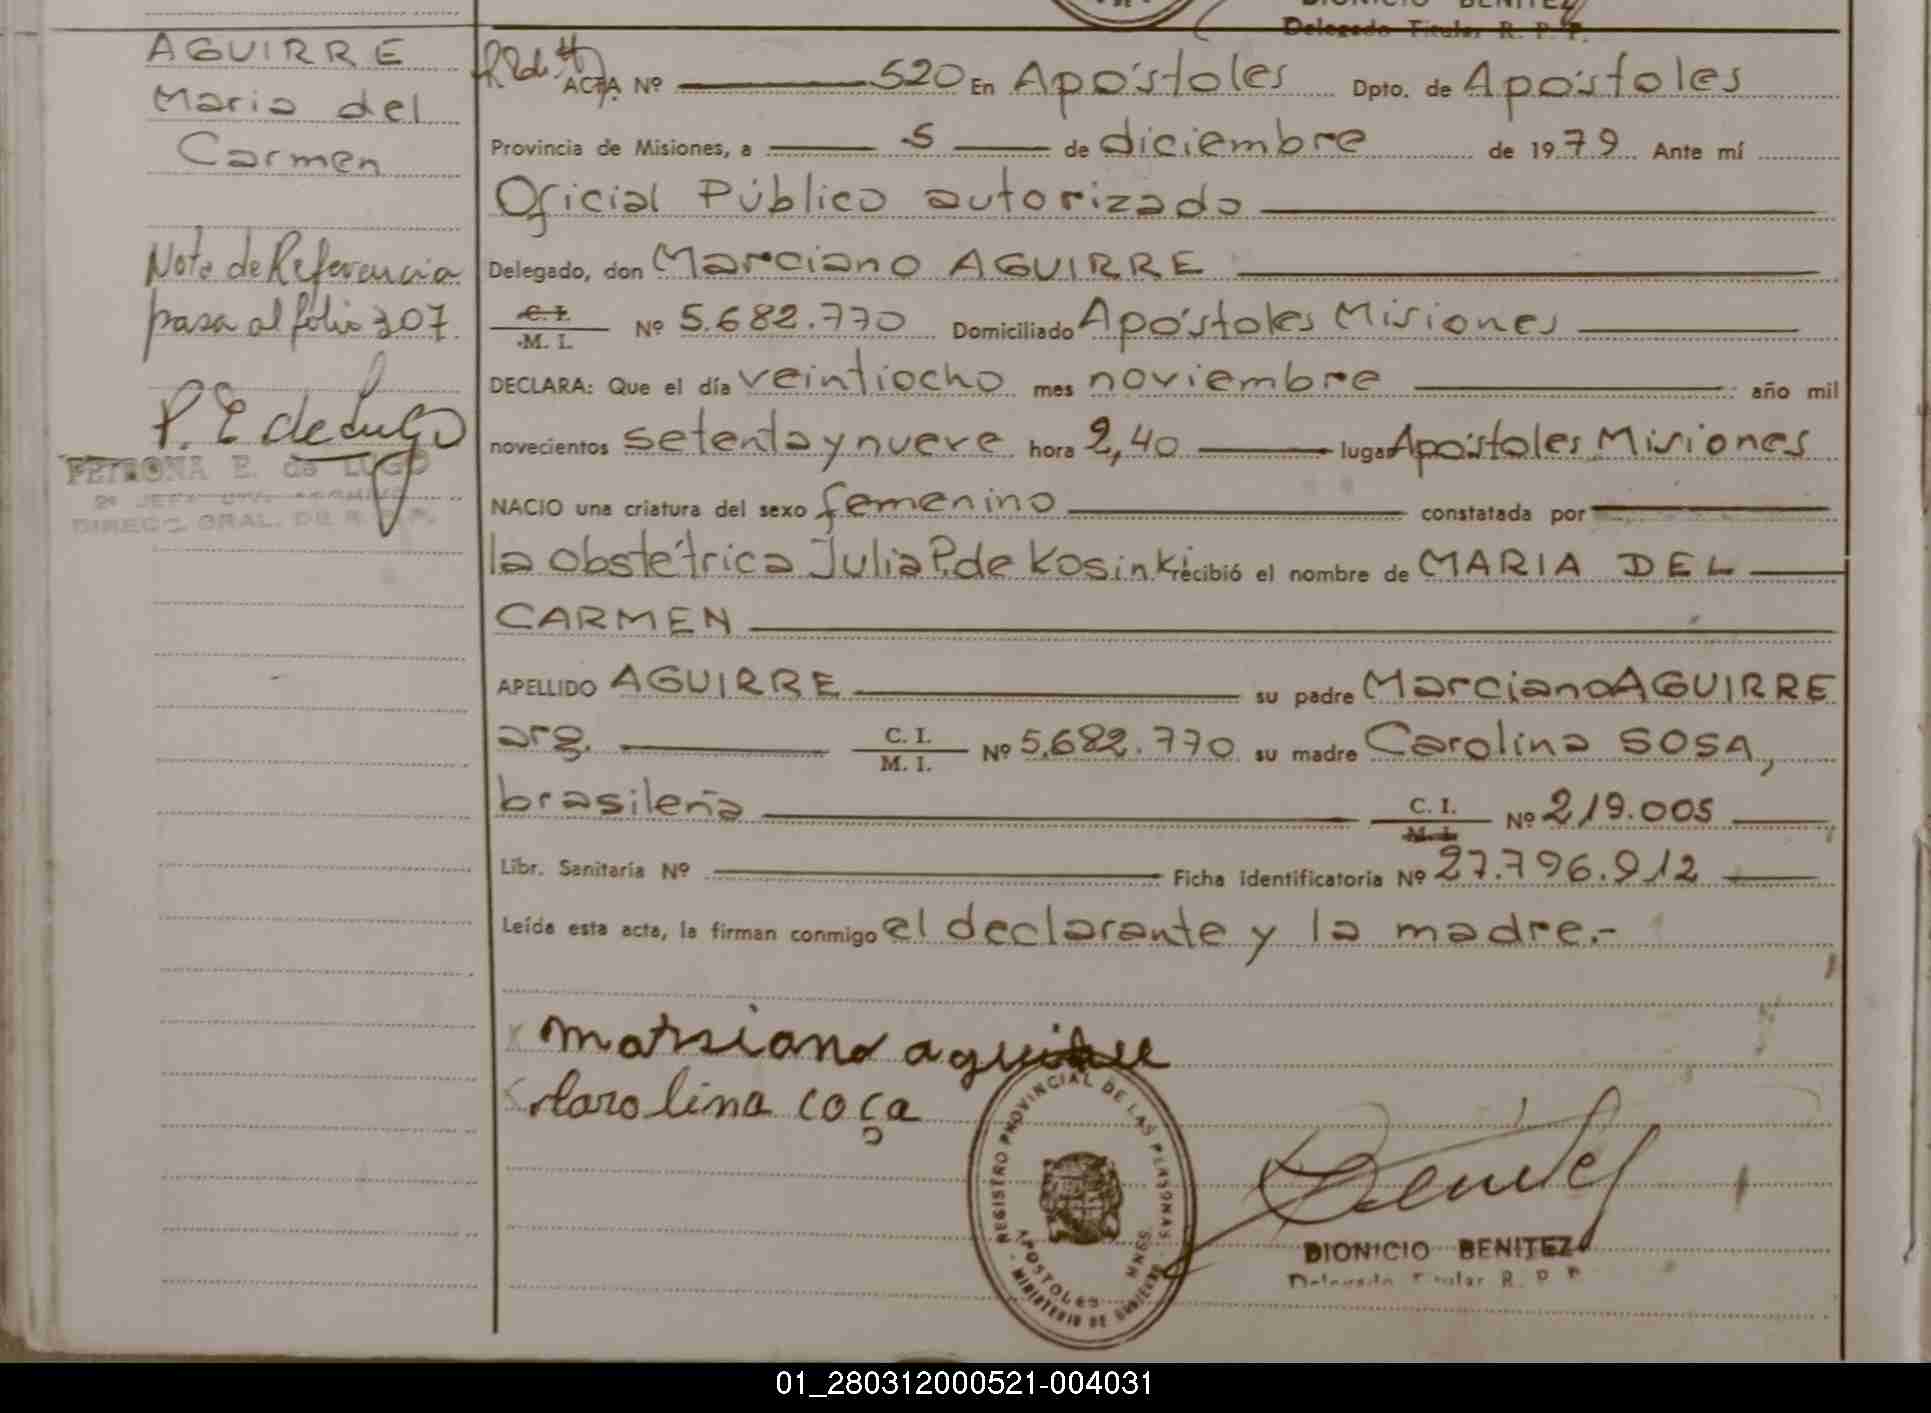 DIONICIO BENITEZ
Delegado Titular R. P. P.
AGUIRRE
Maria del
Carmen
Nota de Referencia
pasa al folio 307.
P. E de Lugo
PETRONA E. de LUGO
DIRECC. GRAL. DE R. P. P.
ACTA Nº 520 En Apóstoles Dpto. de Apóstoles
Provincia de Misiones, a 5 de diciembre de 1979 Ante mí
Oficial Público autorizado
Delegado, don Marciano AGUIRRE
C. I. / M. I. Nº 5.682.770 Domiciliado Apóstoles Misiones
DECLARA: Que el día veintiocho mes noviembre año mil
novecientos setenta y nueve hora 2,40 lugar Apóstoles Misiones
NACIO una criatura del sexo femenino constatada por
la obstétrica Julia P. de Kosinki recibió el nombre de MARIA DEL
CARMEN
APELLIDO AGUIRRE su padre Marciano AGUIRRE
arg. C. I. / M. I. Nº 5.682.770 su madre Carolina SOSA,
brasileña C. I. / M. I. Nº 219.005
Libr. Sanitaría Nº Ficha identificatoria Nº 27.796.912
Leída esta acta, la firman conmigo el declarante y la madre.-
marsiano aguirre
Carolina coça
REGISTRO PROVINCIAL DE LAS PERSONAS
APOSTOLES MNES
MINISTERIO DE GOBIERNO
DIONICIO BENITEZ
Delegado Titular R. P. P.
01_280312000521-004031